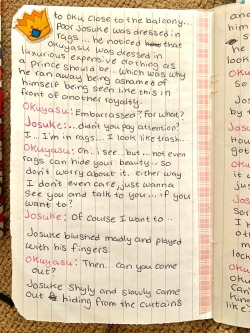 to Oku close to the balcony...
Poor Josuke was dressed in
rags... he noticed that
Okuyasu was dressed in
luxurious expensive clothing as
a prince should be.. which was why
he ran away being ashamed of
himself being seen like this in
front of another royality.
Okuyasu: Embarrassed? For what?
Josuke:... didn't you pay attention?
I... I'm in rags... I look like trash...
Okuyasu: Oh.. i see... but... not even
rags can hide your beauty.. so
don't worry about it.. either way
I don't even care, just wanna
see you and talk to you... if you
want to?
Josuke: Of course I want to..
Josuke blushed madly and played
with his fingers.
Okuyasu: Then.. can you come
out?
Josuke Shyly and slowly came
out hiding from the curtains